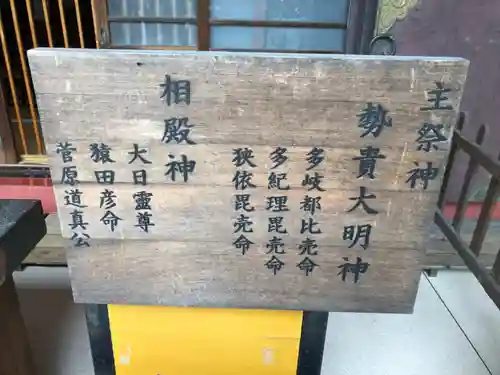 主祭神
勢貴大明神
多岐都比売命
多紀理毘売命
狭依毘売命
相殿神
大日霊尊
猿田彦命
菅原道真公